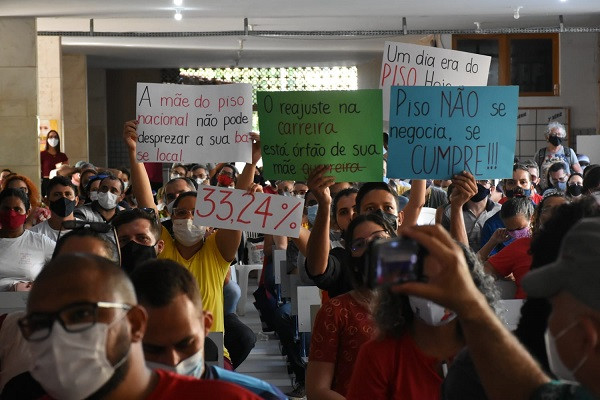 A mãe do piso
nacional não pode
desprezar a sua ba
se local.
O reajuste na
carreira
está órfão de sua
mãe guerreira
Um dia era do
PISO Hoje
Piso NÃO se
negocia, se
CUMPRE!!!
33,24%